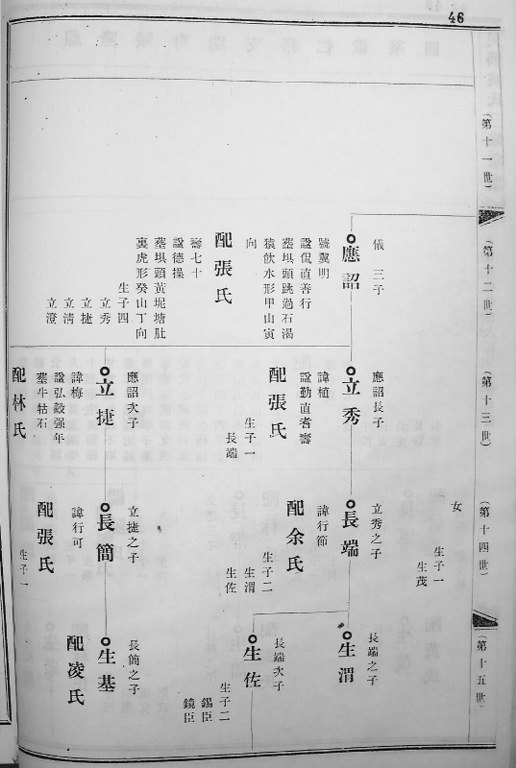 46
(第十一世)
(第十二世)
儀 三子
應詔
號翼明
諡侃直善行
墓垻頭跳過石濁
猿飲水形甲山寅
向
配張氏
壽七十
諡德操
墓垻頭黃坭塘肚
裏虎形癸山丁向
生子四
立秀
立捷
立清
立澄
(第十三世)
應詔長子
立秀
諱植
諡勤直耆壽
配張氏
生子一
長端
應詔次子
立捷
諱梅
諡弘毅强年
墓牛牯石
配林氏
(第十四世)
女
生子一
生茂
立秀之子
長端
諱行節
配余氏
生子二
生渭
生佐
立捷之子
長簡
諱行可
配張氏
生子一
(第十五世)
長端之子
生渭
長端次子
生佐
生子二
錫臣
鏡臣
長簡之子
生基
配凌氏